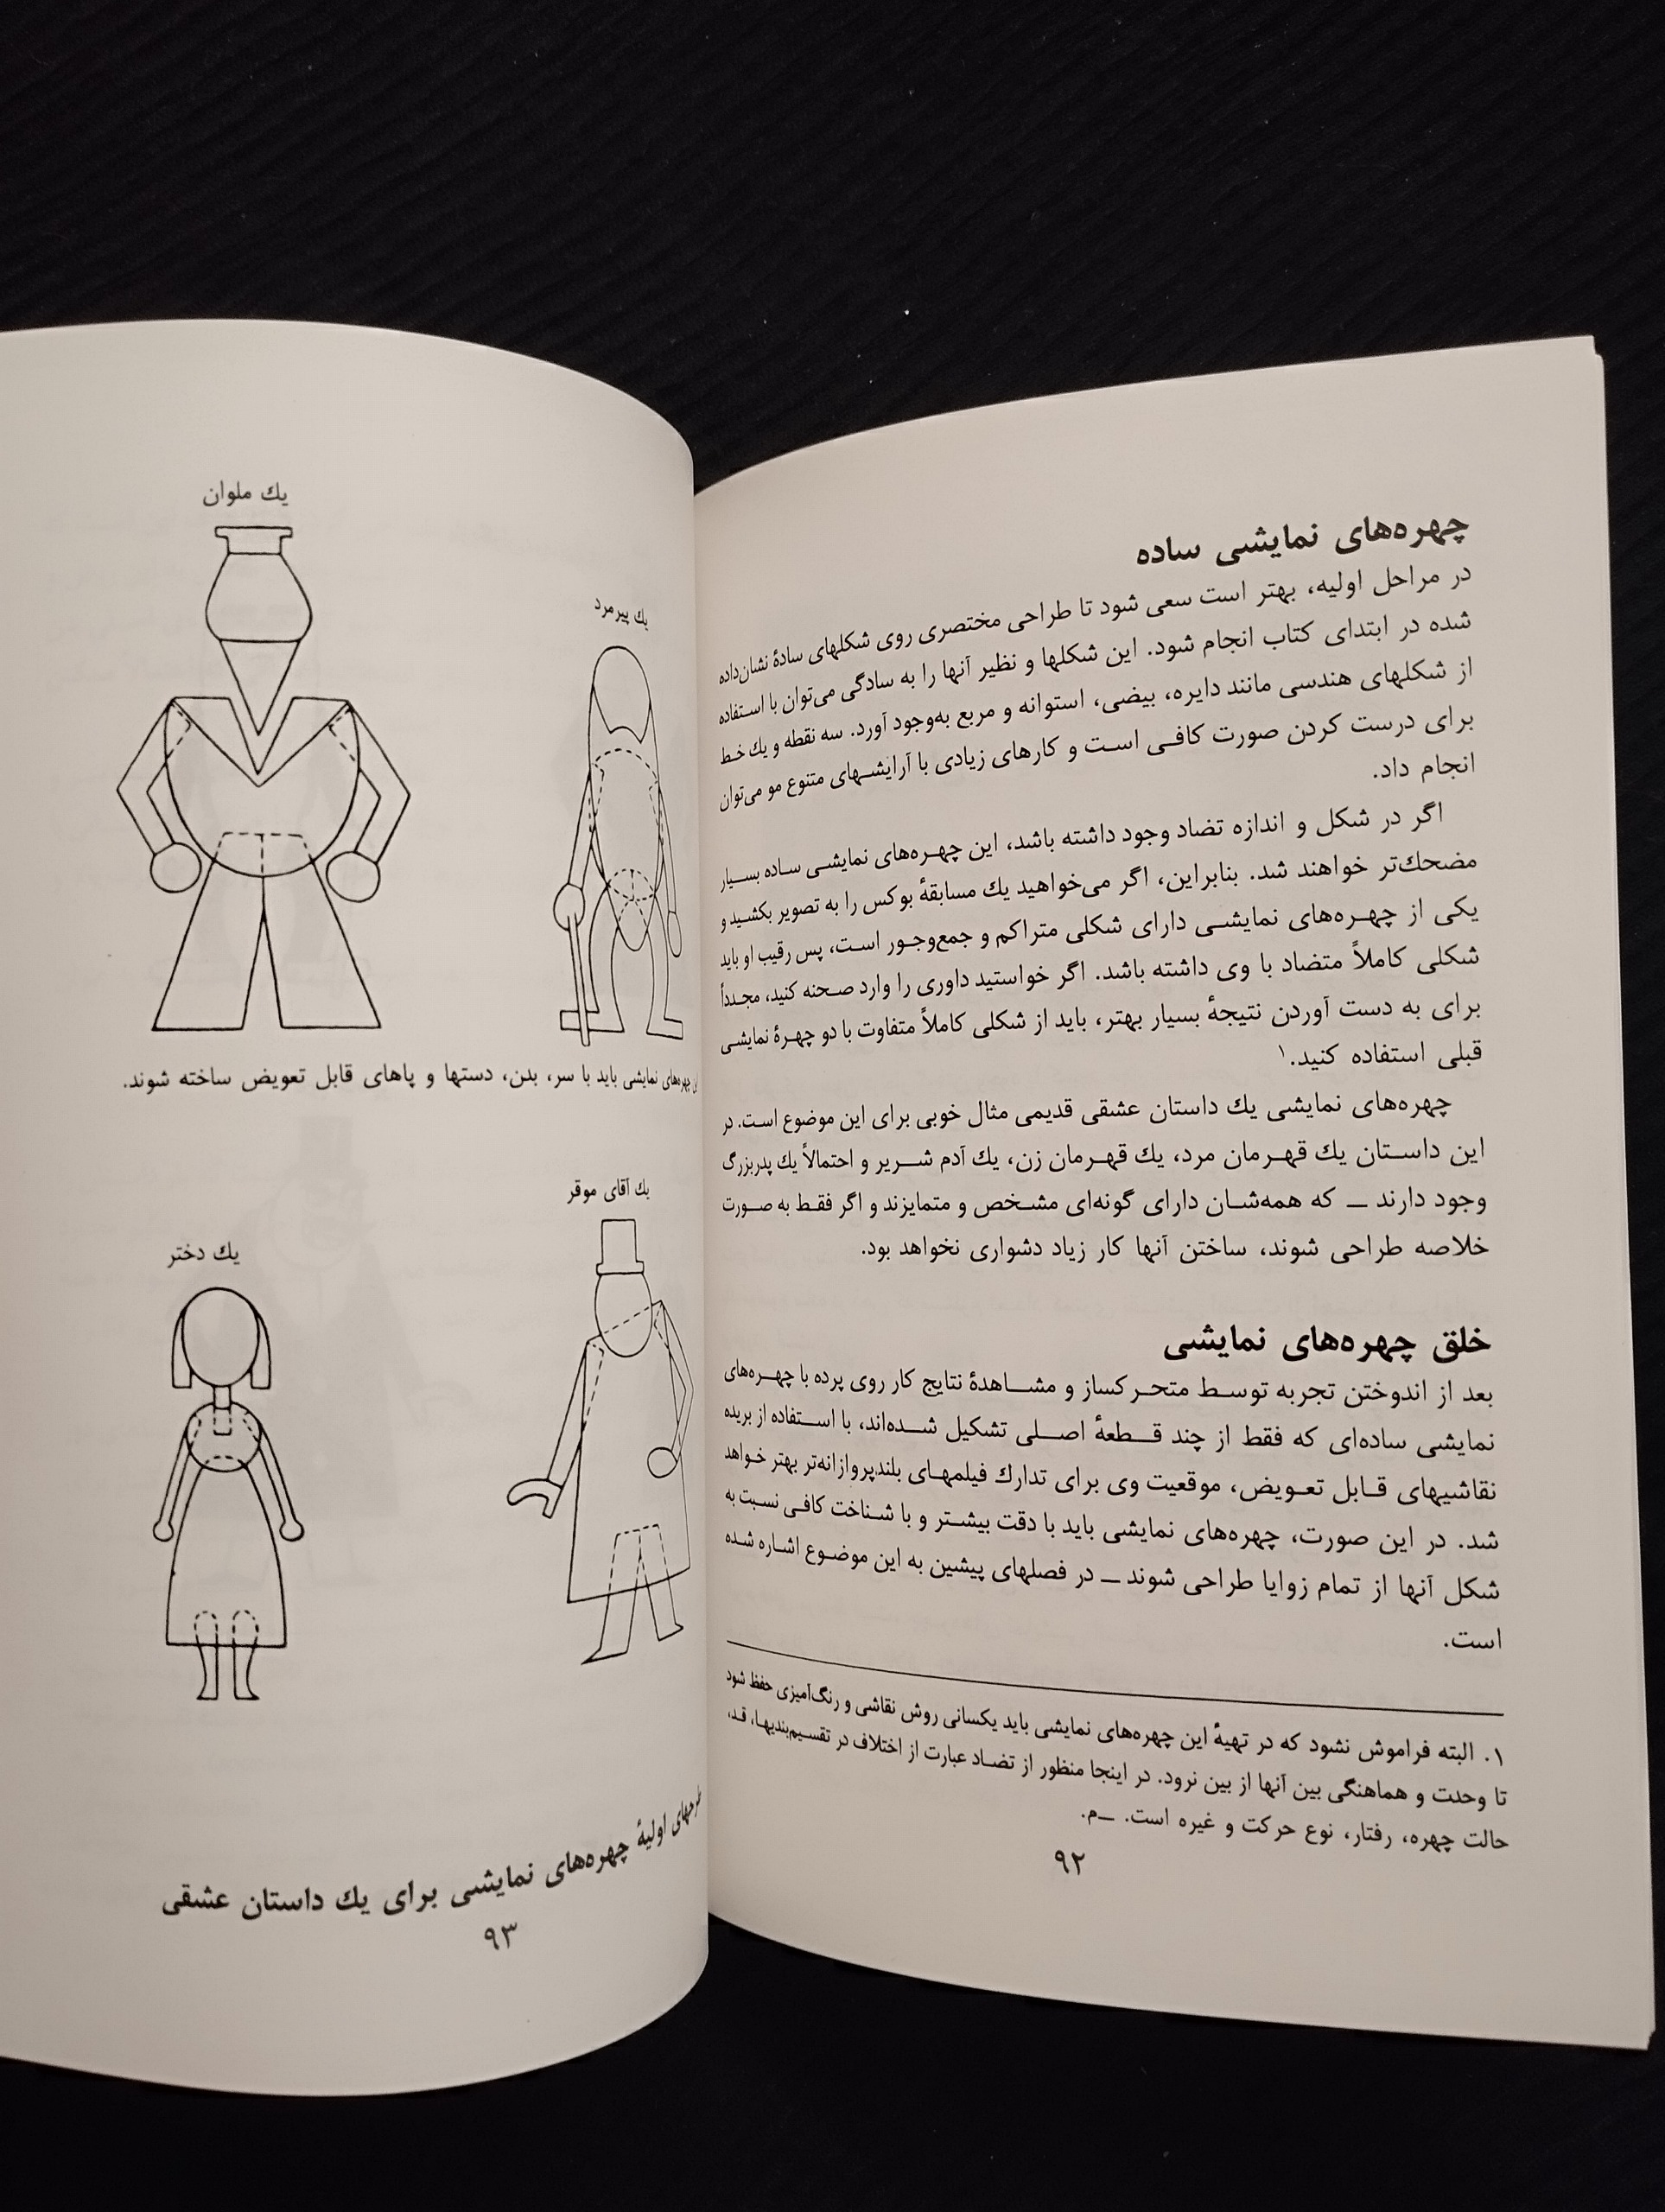 چهره‌های نمایشی ساده
در مراحل اولیه، بهتر است سعی شود تا طراحی مختصری روی شکلهای سادهٔ نشان‌داده
شده در ابتدای کتاب انجام شود. این شکلها و نظیر آنها را به سادگی می‌توان با استفاده
از شکلهای هندسی مانند دایره، بیضی، استوانه و مربع به‌وجود آورد. سه نقطه و یك خط
برای درست کردن صورت کافی است و کارهای زیادی با آرایشهای متنوع مو می‌توان
انجام داد.
اگر در شکل و اندازه تضاد وجود داشته باشد، این چهره‌های نمایشی ساده بسیار
مضحك‌تر خواهند شد. بنابراین، اگر می‌خواهید یك مسابقهٔ بوکس را به تصویر بکشید و
یکی از چهره‌های نمایشی دارای شکلی متراکم و جمع‌وجور است، پس رقیب او باید
شکلی کاملاً متضاد با وی داشته باشد. اگر خواستید داوری را وارد صحنه کنید، مجدداً
برای به دست آوردن نتیجهٔ بسیار بهتر، باید از شکلی کاملاً متفاوت با دو چهرهٔ نمایشی
قبلی استفاده کنید.۱
چهره‌های نمایشی یك داستان عشقی قدیمی مثال خوبی برای این موضوع است. در
این داستان یك قهرمان مرد، یك قهرمان زن، یك آدم شریر و احتمالاً یك پدربزرگ
وجود دارند ــ که همه‌شان دارای گونه‌ای مشخص و متمایزند و اگر فقط به صورت
خلاصه طراحی شوند، ساختن آنها کار زیاد دشواری نخواهد بود.
خلق چهره‌های نمایشی
بعد از اندوختن تجربه توسط متحرکساز و مشاهدهٔ نتایج کار روی پرده با چهره‌های
نمایشی ساده‌ای که فقط از چند قطعهٔ اصلی تشکیل شده‌اند، با استفاده از بریده
نقاشیهای قابل تعویض، موقعیت وی برای تدارك فیلمهای بلندپروازانه‌تر بهتر خواهد
شد. در این صورت، چهره‌های نمایشی باید با دقت بیشتر و با شناخت کافی نسبت به
شکل آنها از تمام زوایا طراحی شوند ــ در فصلهای پیشین به این موضوع اشاره شده
است.
۱. البته فراموش نشود که در تهیهٔ این چهره‌های نمایشی باید یکسانی روش نقاشی و رنگ‌آمیزی حفظ شود
تا وحدت و هماهنگی بین آنها از بین نرود. در اینجا منظور از تضاد عبارت از اختلاف در تقسیم‌بندیها، قد،
حالت چهره، رفتار، نوع حرکت و غیره است. ــم.
۹۲
یك پیرمرد
یك ملوان
این چهره‌های نمایشی باید با سر، بدن، دستها و پاهای قابل تعویض ساخته شوند.
یك آقای موقر
یك دختر
طرحهای اولیهٔ چهره‌های نمایشی برای یك داستان عشقی
۹۳